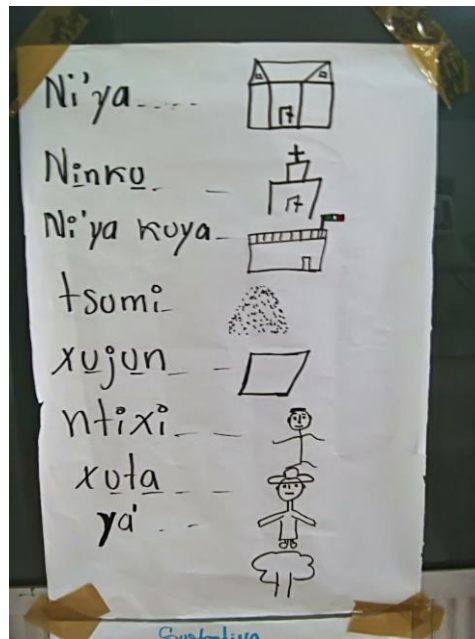 Ni'ya.....
Ni̱nku̱ _ _
Ni'ya kuya_
tsumi_
xu̱ju̱n_ _
ntixi_ _ _
xu̱ta̱ _ _ _
ya' _ _
Sustantivo